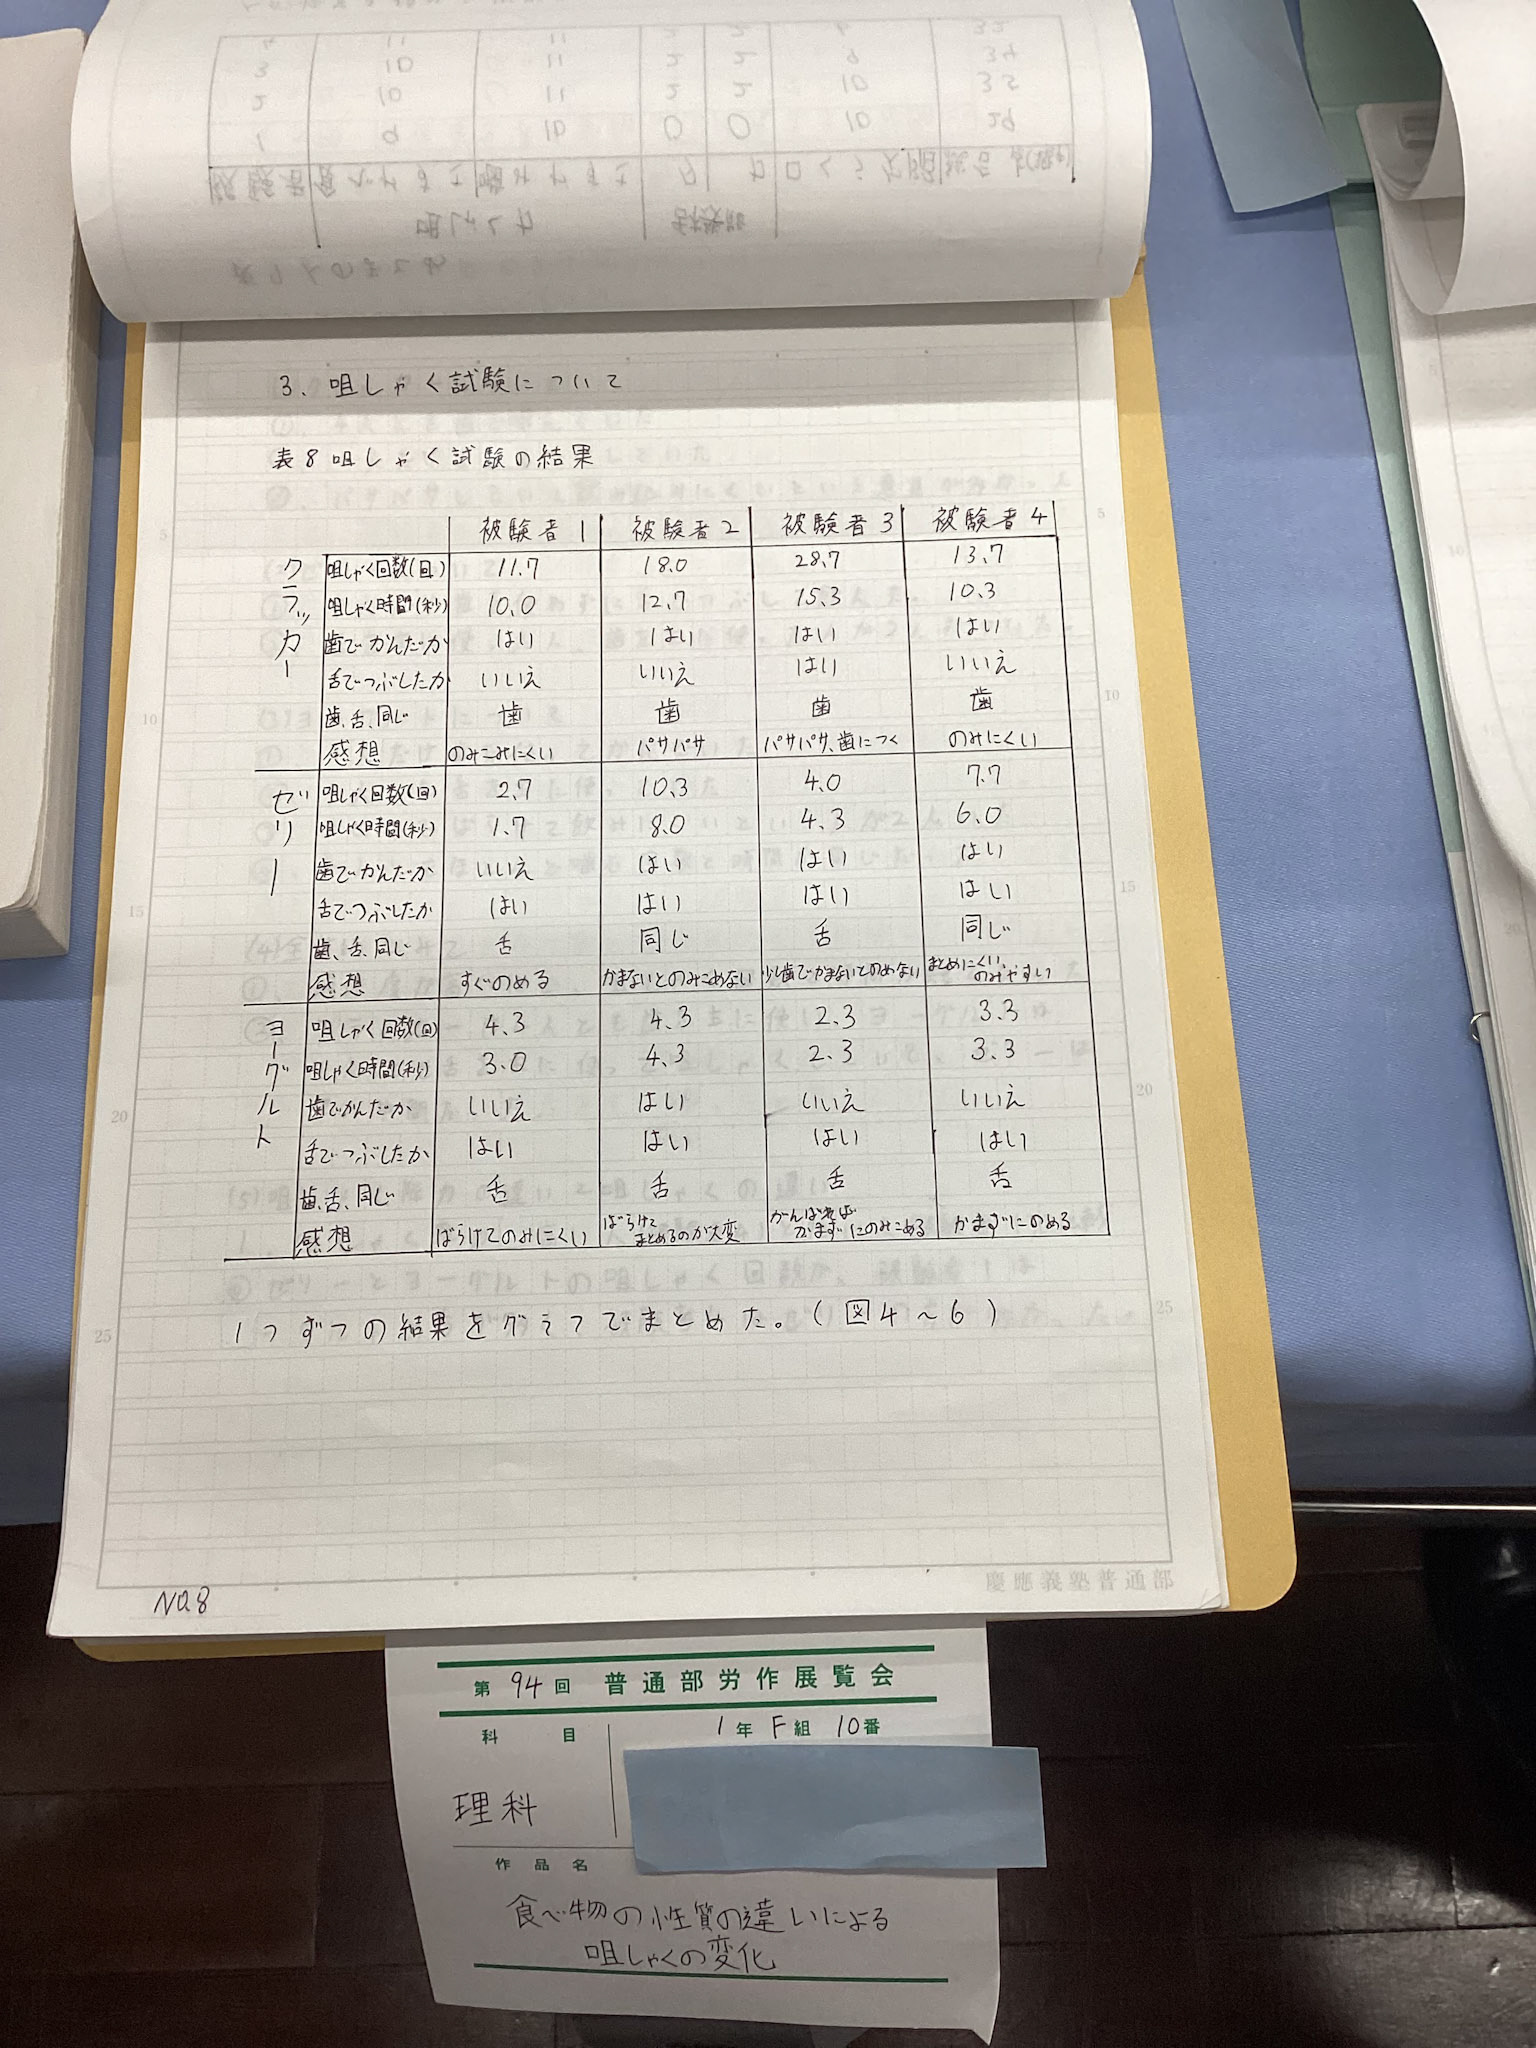 3. 咀しゃく試験について
表8 咀しゃく試験の結果
被験者1 被験者2 被験者3 被験者4
クラッカー
咀しゃく回数(回) 11.7 18.0 28.7 13.7
咀しゃく時間(秒) 10.0 12.7 15.3 10.3
歯でかんだか はい はい はい はい
舌でつぶしたか いいえ いいえ はい いいえ
歯、舌、同じ 歯 歯 歯 歯
感想 のみこみにくい パサパサ パサパサ、歯につく のみにくい
ゼリー
咀しゃく回数(回) 2.7 10.3 4.0 7.7
咀しゃく時間(秒) 1.7 8.0 4.3 6.0
歯でかんだか いいえ はい はい はい
舌でつぶしたか はい はい はい はい
歯、舌、同じ 舌 同じ 舌 同じ
感想 すぐのめる かまないとのみこめない 少し歯でかまないとのめない まとめにくい、のみやすい
ヨーグルト
咀しゃく回数(回) 4.3 4.3 2.3 3.3
咀しゃく時間(秒) 3.0 4.3 2.3 3.3
歯でかんだか いいえ はい いいえ いいえ
舌でつぶしたか はい はい はい はい
歯、舌、同じ 舌 舌 舌 舌
感想 ばらけてのみにくい ばらけてまとめるのが大変 がんばればかまずにのみこめる かまずにのめる
1つずつの結果をグラフでまとめた。(図4~6)
5
10
15
20
25
5
10
15
20
25
慶應義塾普通部
No.8
第94回 普通部労作展覧会
科目 1年F組10番
理科
作品名
食べ物の性質の違いによる
咀しゃくの変化